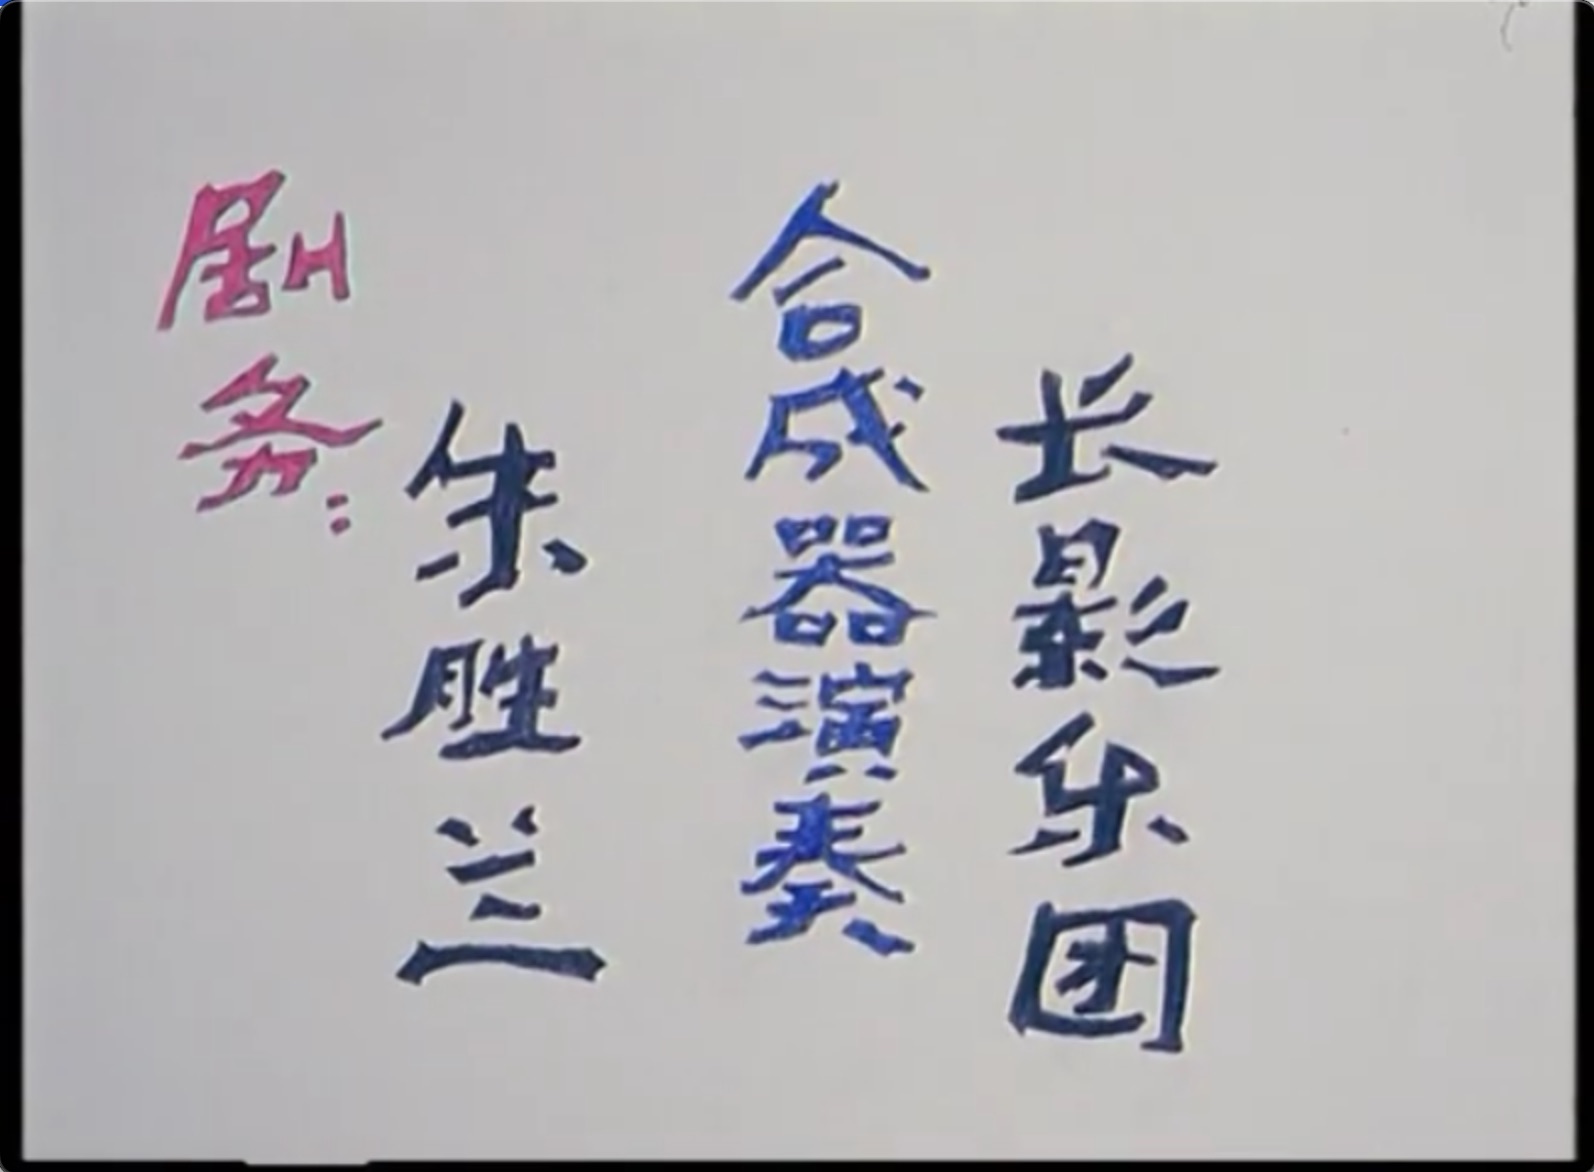 剧务:
朱胜兰
合成器演奏
长影乐团